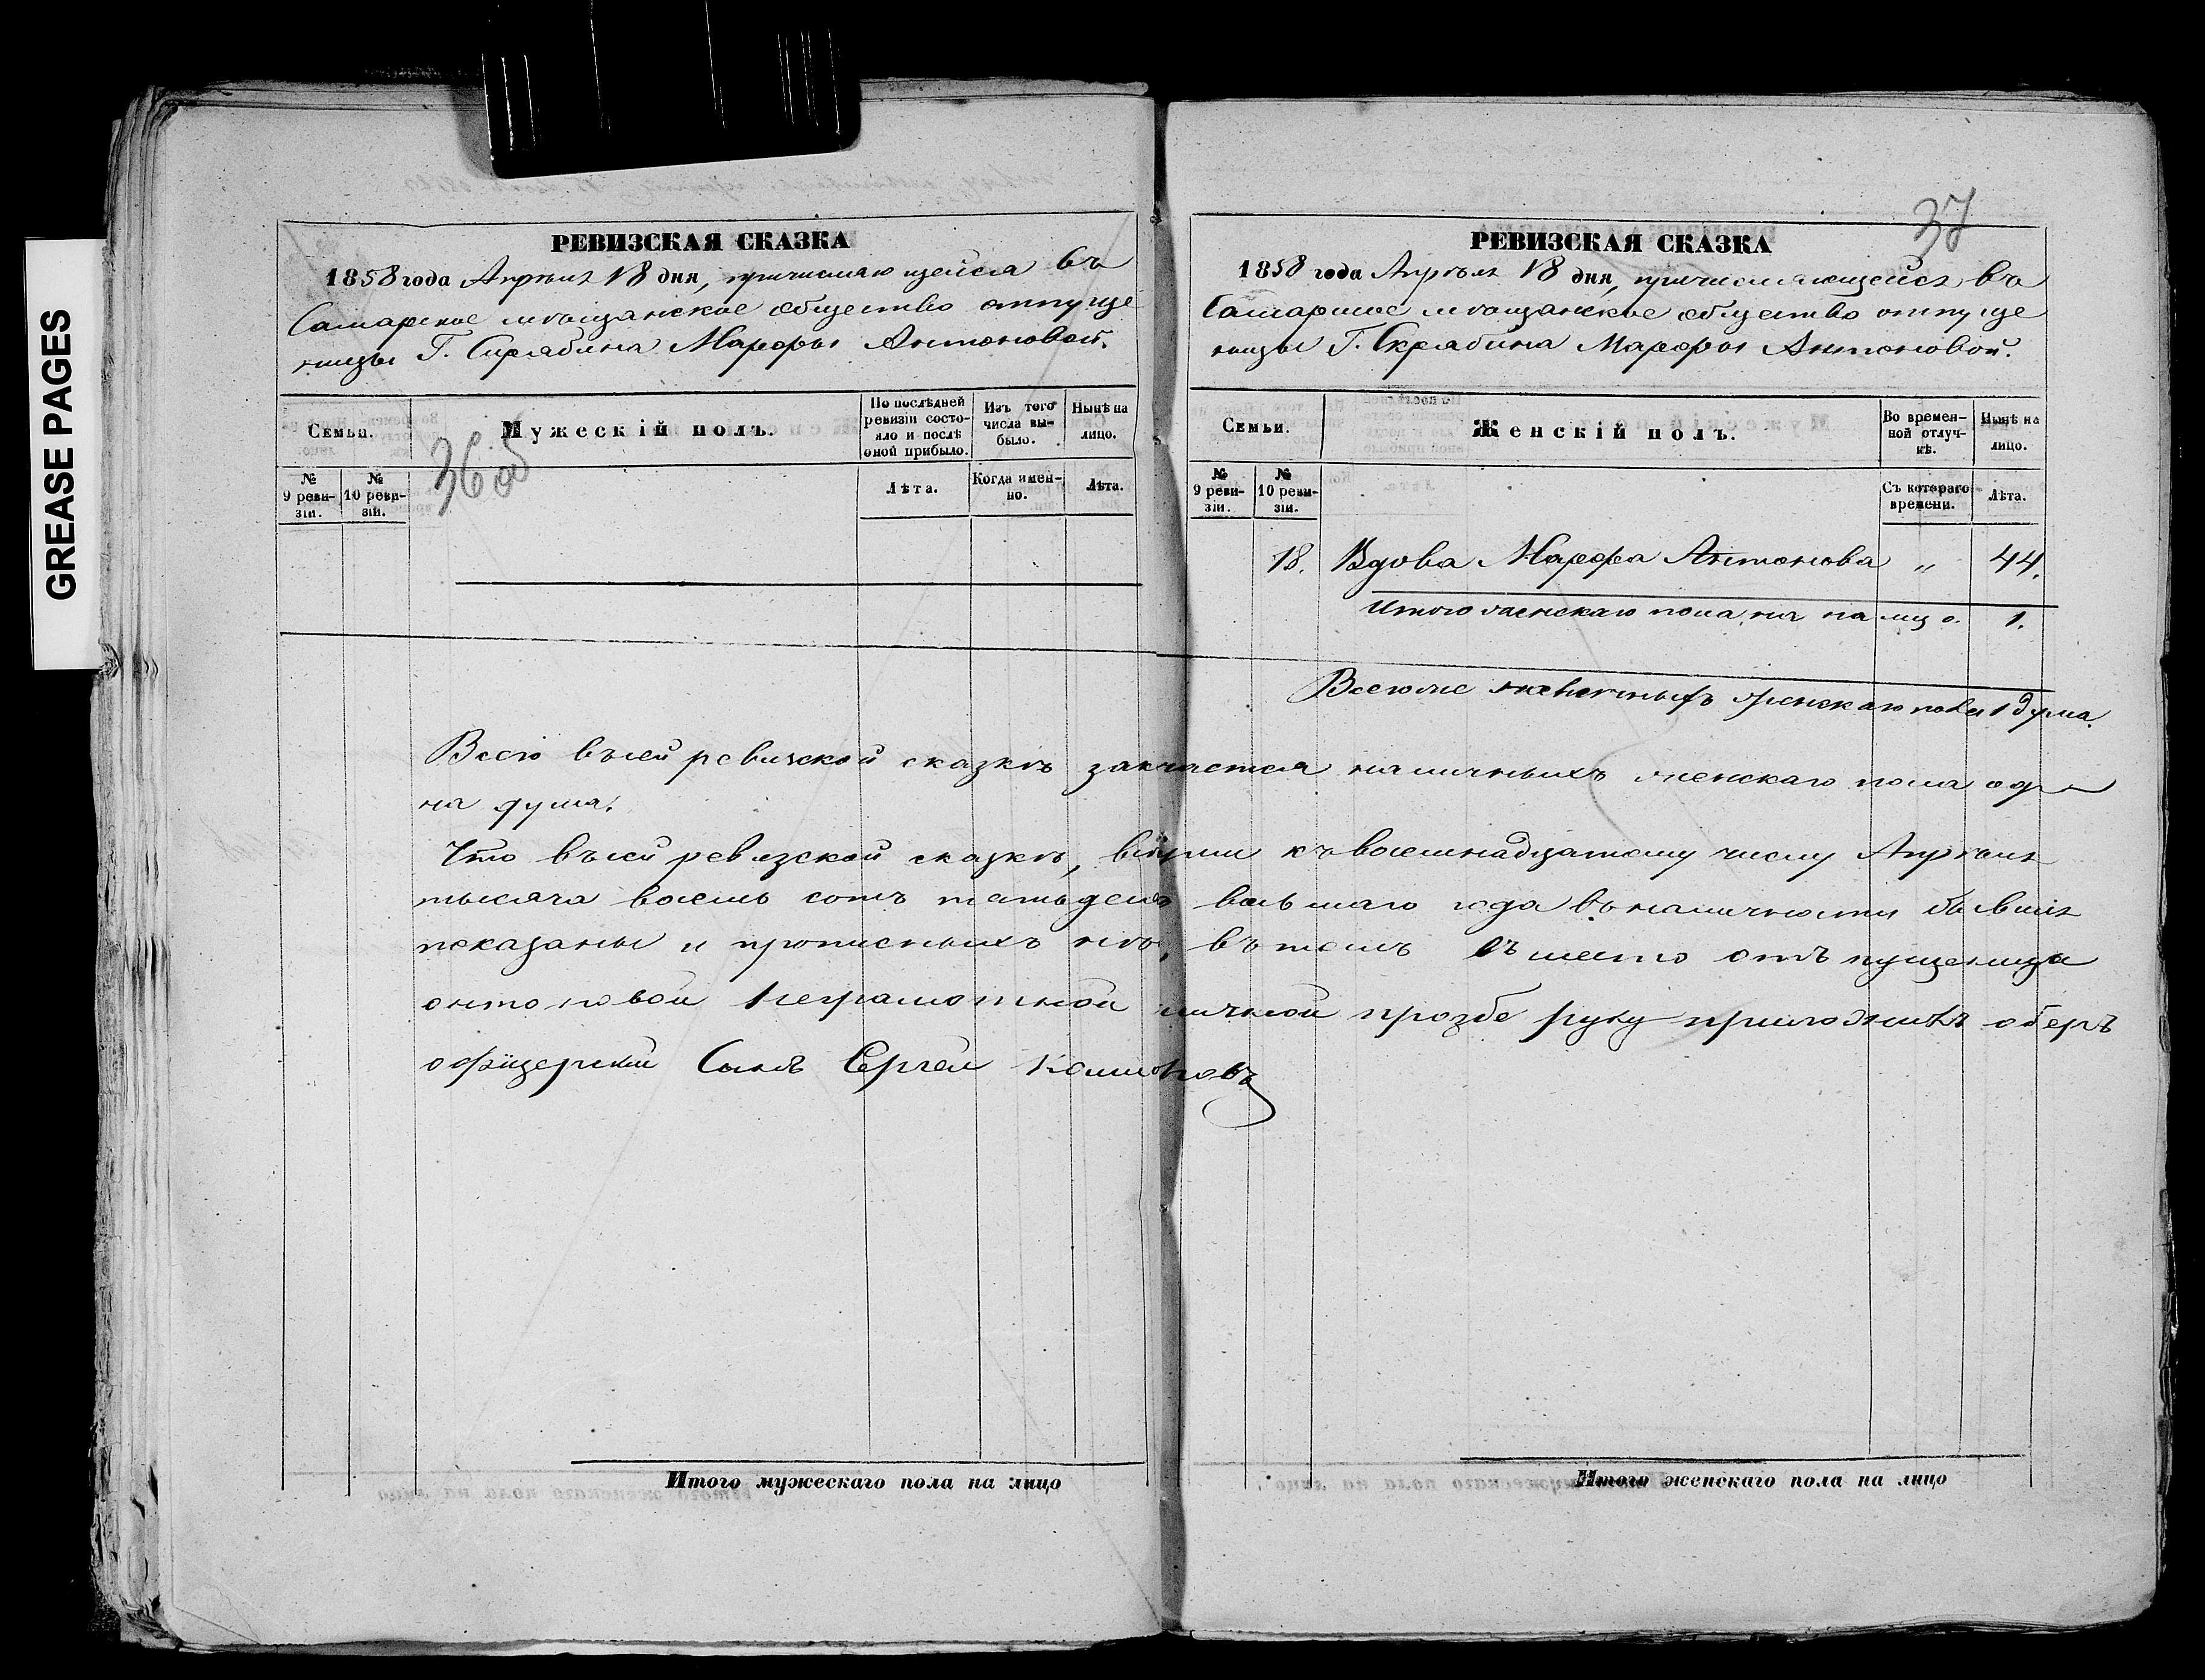 GREASE PAGES
РЕВИЗСКАЯ СКАЗКА
1858 года Апрѣля 18 дня, причисляющейся въ
Самарское мѣщанское общество отпуще
ницы Г. Скрябина Марфы Антоновой.
Семьи.
Мужескій полъ.
По послѣдней ревизіи состояло и послѣ оной прибыло.
Изъ того числа выбыло.
Нынѣ на лицо.
№ 9 ревизіи.
№ 10 ревизіи.
36 об
Лѣта.
Когда именно.
Лѣта.
Итого мужескаго пола на лицо
37
РЕВИЗСКАЯ СКАЗКА
1858 года Апрѣля 18 дня, причисляющейся въ
Самарское мѣщанское общество отпуще
ницы Г. Скрябина Марфы Антоновой.
Семьи.
Женскій полъ.
Во временной отлучкѣ.
Нынѣ на лицо.
№ 9 ревизіи.
№ 10 ревизіи.
Съ котораго времени.
Лѣта.
18. Вдова Марфа Антонова „ 44.
Итого женскаго пола на на лицо. 1.
Всего же наличныхъ женскаго пола 1 душа.
Всего въ сей ревизской сказкѣ наличныхъ женскаго пола од
на душа.
Что въ сей ревизской сказкѣ, къ восемнадцатому числу Апрѣля
тысяча восемь сотъ пятьдесят восьмаго года въ наличности бывшія
показаны и прописныхъ нѣтъ, въ томъ въ место отъ пущеница
онтоновой неграмотной личной прозбе руку приложилъ оберъ
офицерскій Сынъ Сергей
Итого женскаго пола на лицо